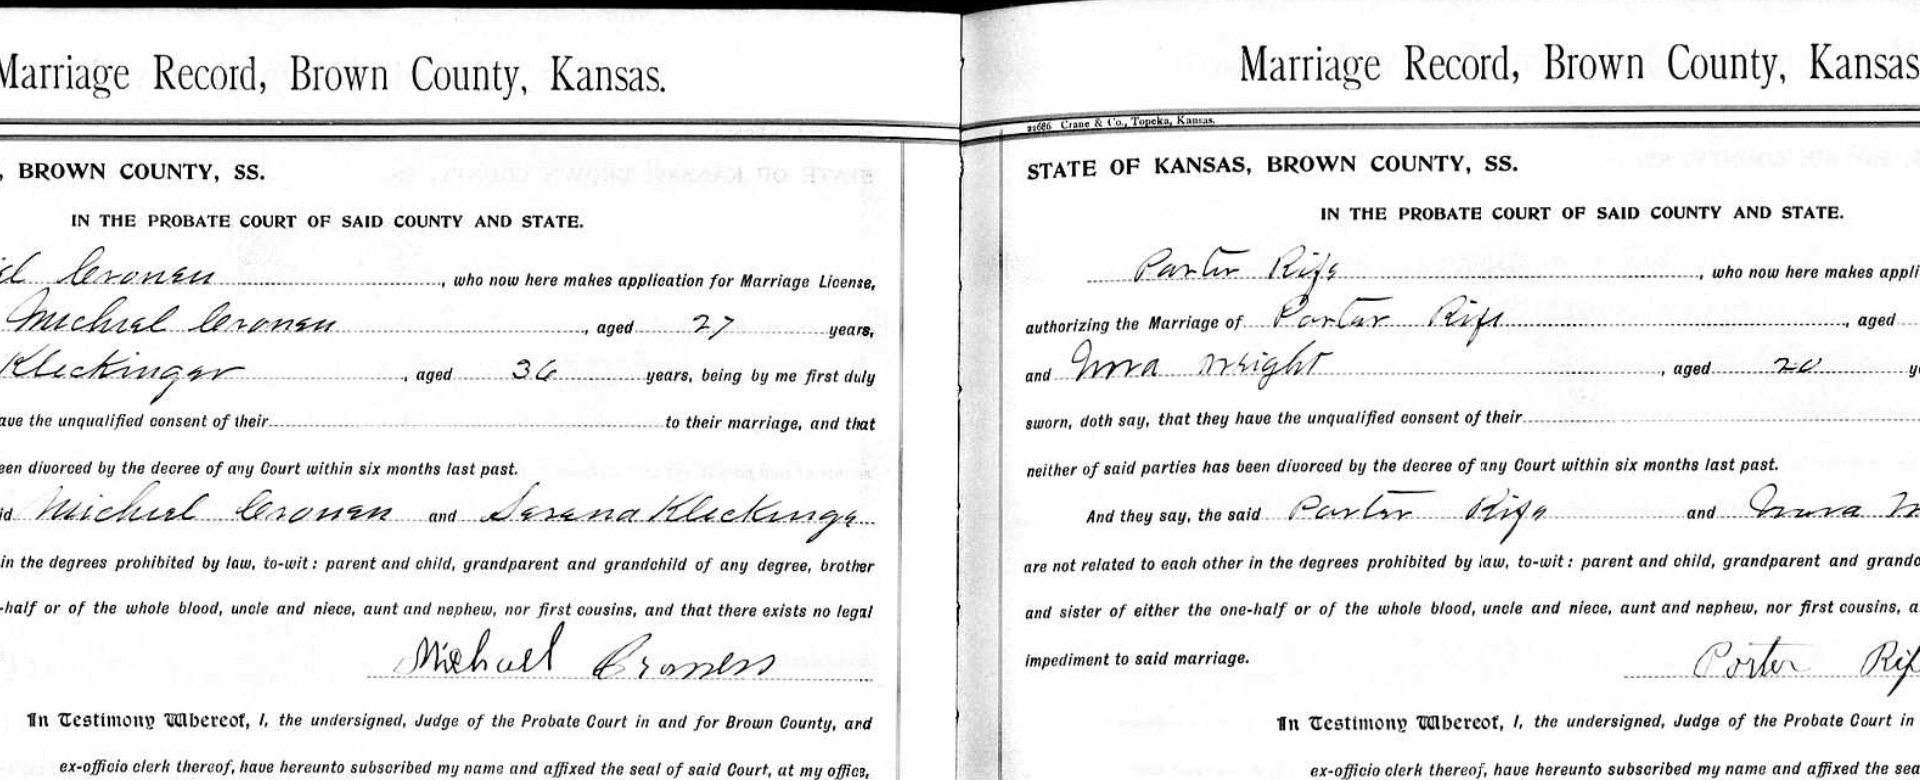 Marriage Record, Brown County, Kansas.
, BROWN COUNTY, SS.
IN THE PROBATE COURT OF SAID COUNTY AND STATE.
Cronen, who now here makes application for Marriage License,
Michael Cronen, aged 27 years,
Kleckinger, aged 36 years, being by me first duly
ave the unqualified consent of their to their marriage, and that
een divorced by the decree of any Court within six months last past.
id Michael Cronen and Serena Kleckinge
in the degrees prohibited by law, to-wit: parent and child, grandparent and grandchild of any degree, brother
-half or of the whole blood, uncle and niece, aunt and nephew, nor first cousins, and that there exists no legal
Michael
In Testimony Whereof, I, the undersigned, Judge of the Probate Court in and for Brown County, and
ex-officio clerk thereof, have hereunto subscribed my name and affixed the seal of said Court, at my office,
Marriage Record, Brown County, Kansas
Crane & Co., Topeka, Kansas.
STATE OF KANSAS, BROWN COUNTY, SS.
IN THE PROBATE COURT OF SAID COUNTY AND STATE.
Porter Rife, who now here makes appli
authorizing the Marriage of Porter Rife, aged
and Nora Wright, aged 20 y
sworn, doth say, that they have the unqualified consent of their
neither of said parties has been divorced by the decree of any Court within six months last past.
And they say, the said Porter Rife and Nora W
are not related to each other in the degrees prohibited by law, to-wit: parent and child, grandparent and grandc
and sister of either the one-half or of the whole blood, uncle and niece, aunt and nephew, nor first cousins, a
impediment to said marriage.
Porter Rif
In Testimony Whereof, I, the undersigned, Judge of the Probate Court in
ex-officio clerk thereof, have hereunto subscribed my name and affixed the sea